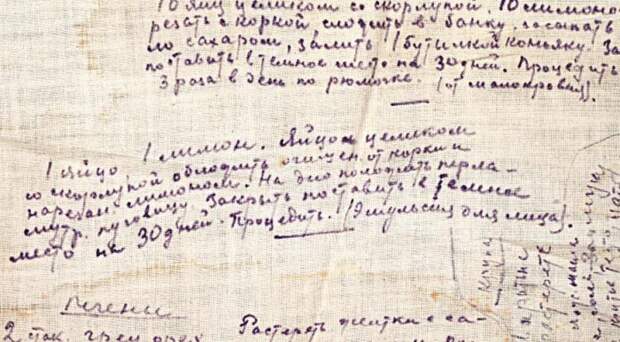 10 яиц целиком со скорлупой. 10 лимонов
резать с коркой, сложить в банку, засыпать
ло сахаром, залить 1 бутылкой коньяку. За
поставить в темное место на 30 дней. Процедить
3 раза в день по рюмочке. (от малокровия).
1 яйцо, 1 лимон. Яйцо целиком
со скорлупой обложить очищен. от корки и
нарезан. лимоном. На дно положить перла-
мутр. пуговицу. Закрыть поставить в темное
место на 30 дней. Процедить. (Эмульсия для лица).
Печень
2 стак. грец. орех
Растереть желтки с са-
крутые
растерете